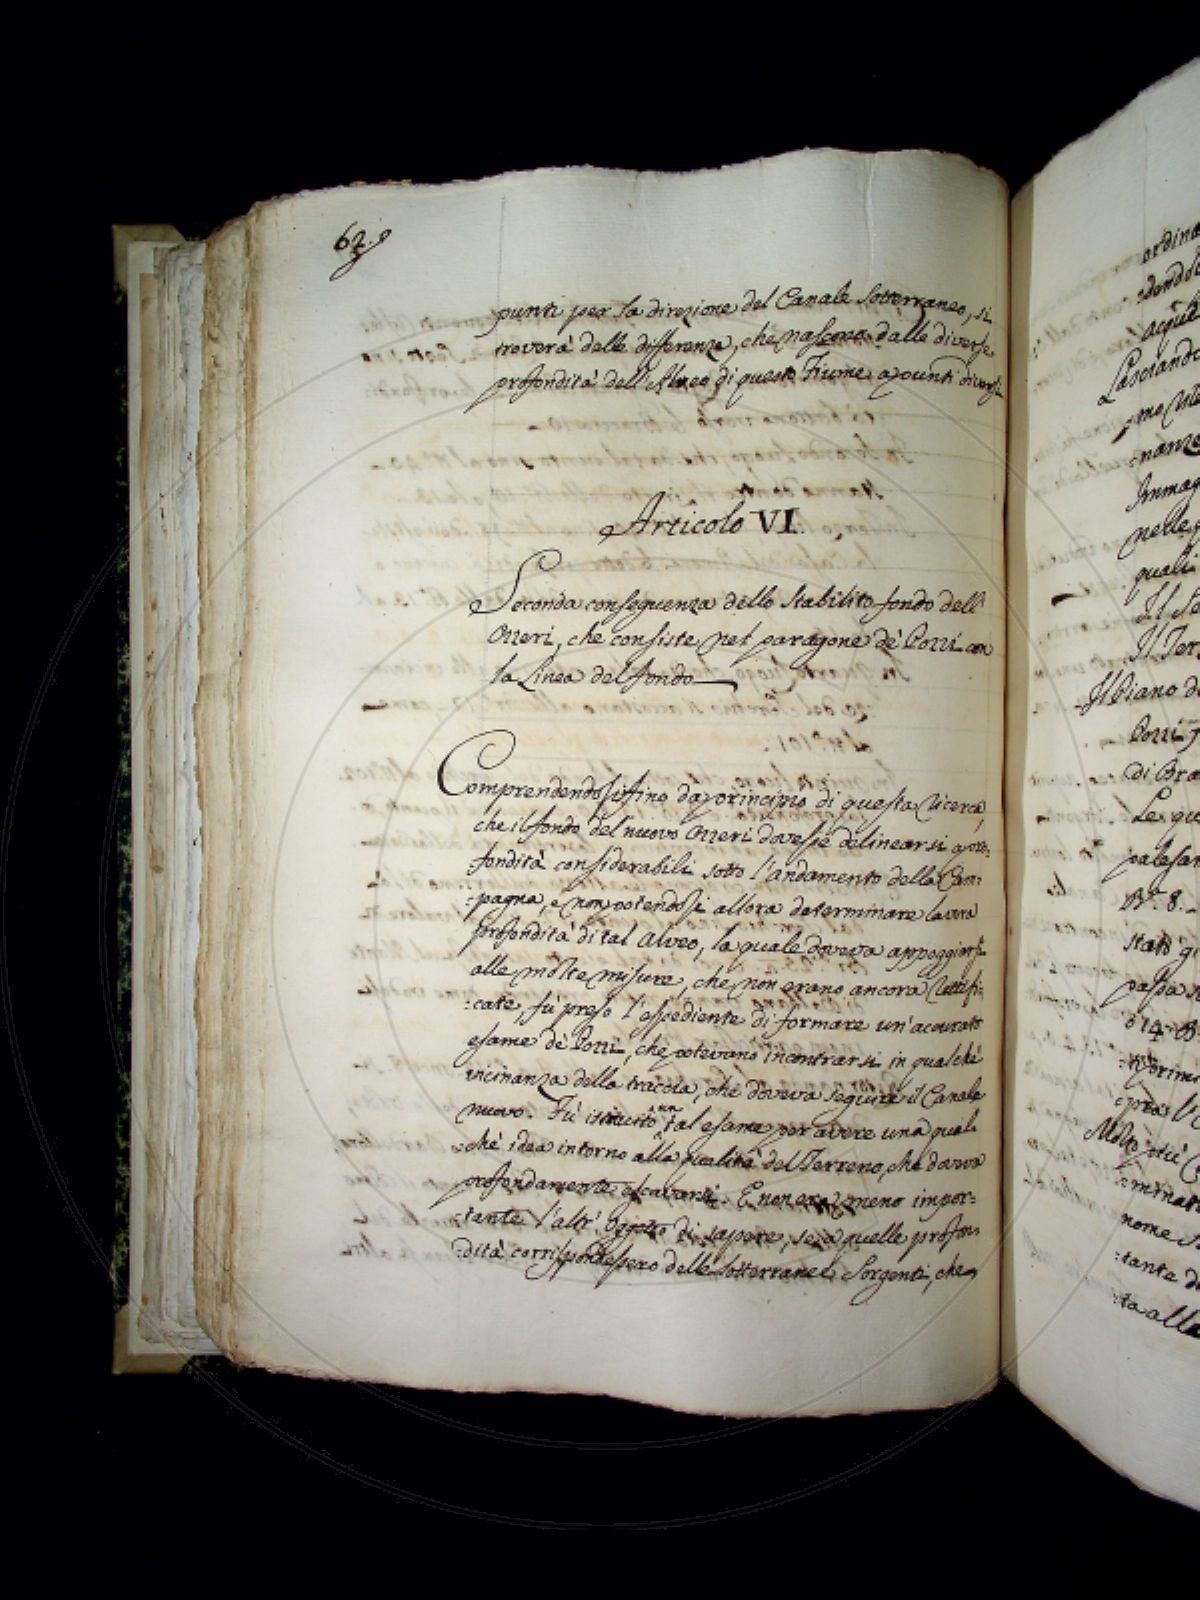 62.
punti per la direzione del Canale sotterraneo, si
troverà delle differenze, che nascono dalle diverse
profondità dell'Alveo di questo Fiume a punti diversi
Articolo VI.
Seconda conseguenza dello stabilito fondo dell'
Ozzeri, che consiste nel paragone de' Pozzi con
la Linea del fondo
Comprendendosi fino da principio di questa ricerca,
che il fondo del nuovo Ozzeri dovesse delinearsi a pro:
:fondità considerabili sotto l'andamento della Cam:
:pagna, e non potendosi allora determinare la vera
profondità di tal Alveo, la quale doveva appoggiarsi
alle molte misure, che non erano ancora rettifi:
:cate, fù preso l'espediente di formare un'accurato
esame de' Pozzi, che potevano incontrarsi in qualche
vicinanza della traccia, che doveva seguire il Canale
nuovo. Fù istituito un tal esame per avere una qual:
:chè idea intorno alla qualità del Terreno, che doveva
profondamente escavarsi. E non era meno impor:
:tante l'altr' Oggetto di sapere, se a quelle profon:
:dità corrispondessero delle sotterranee Sorgenti, che
ordina
:dendo
acque
Lasciando
:nanze
Immag
nelle
quali
Il Se
Il Ter
Il Piano d
Pozzi
di Bra
Le que
palesar
B.ª 8.
stato gi
passa
o 14 B
Molto più
:minar
nome
:tante d
:ta alla